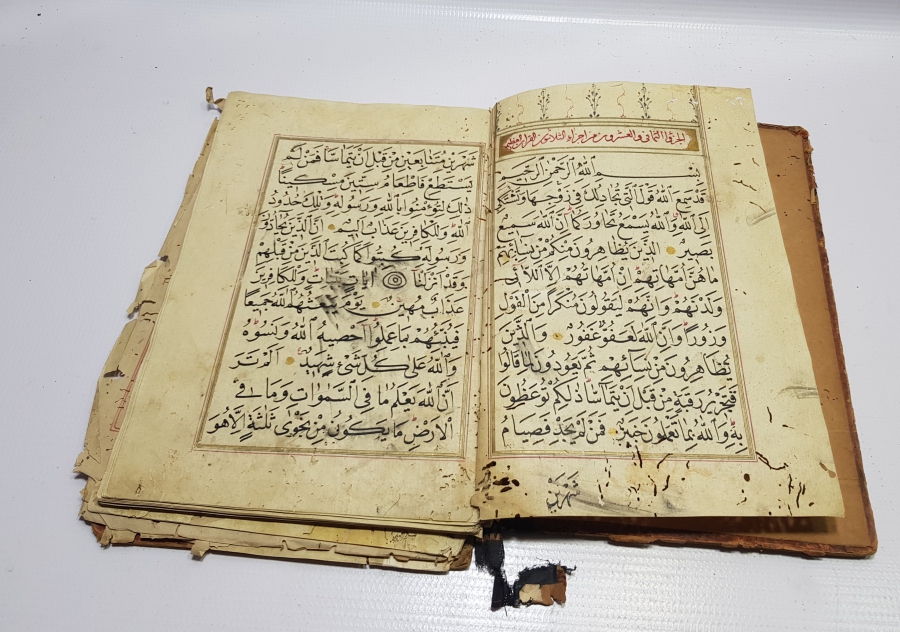 الجزء الثامن والعشرون من اجزاء الثلاثين القران العظيم
بسم الله الرحمن الرحيم
قد سمع الله قول التي تجادلك في زوجها وتشتكي
الى الله والله يسمع تحاوركما ان الله سميع
بصير الذين يظاهرون منكم من نسائهم
ما هن امهاتهم ان امهاتهم الا اللائي
ولدنهم وانهم ليقولون منكرا من القول
وزورا وان الله لعفو غفور والذين
يظاهرون من نسائهم ثم يعودون لما قالوا
فتحرير رقبة من قبل ان يتماسا ذلكم توعظون
به والله بما تعملون خبير فمن لم يجد فصيام
شهرين
شهرين متتابعين من قبل ان يتماسا فمن لم
يستطع فاطعام ستين مسكينا
ذلك لتؤمنوا بالله ورسوله وتلك حدود
الله وللكافرين عذاب اليم ان الذين يحادون
ورسوله كبتوا كما كبت الذين من قبلهم
وقد انزلنا ايات وللكافرين
عذاب مهين يوم يبعثهم الله جميعا
فينبئهم بما عملوا احصيه الله ونسوه
والله على كل شئ شهيد الم تر
ان الله يعلم ما في السموات وما في
الارض ما يكون من نجوى ثلثة الا هو